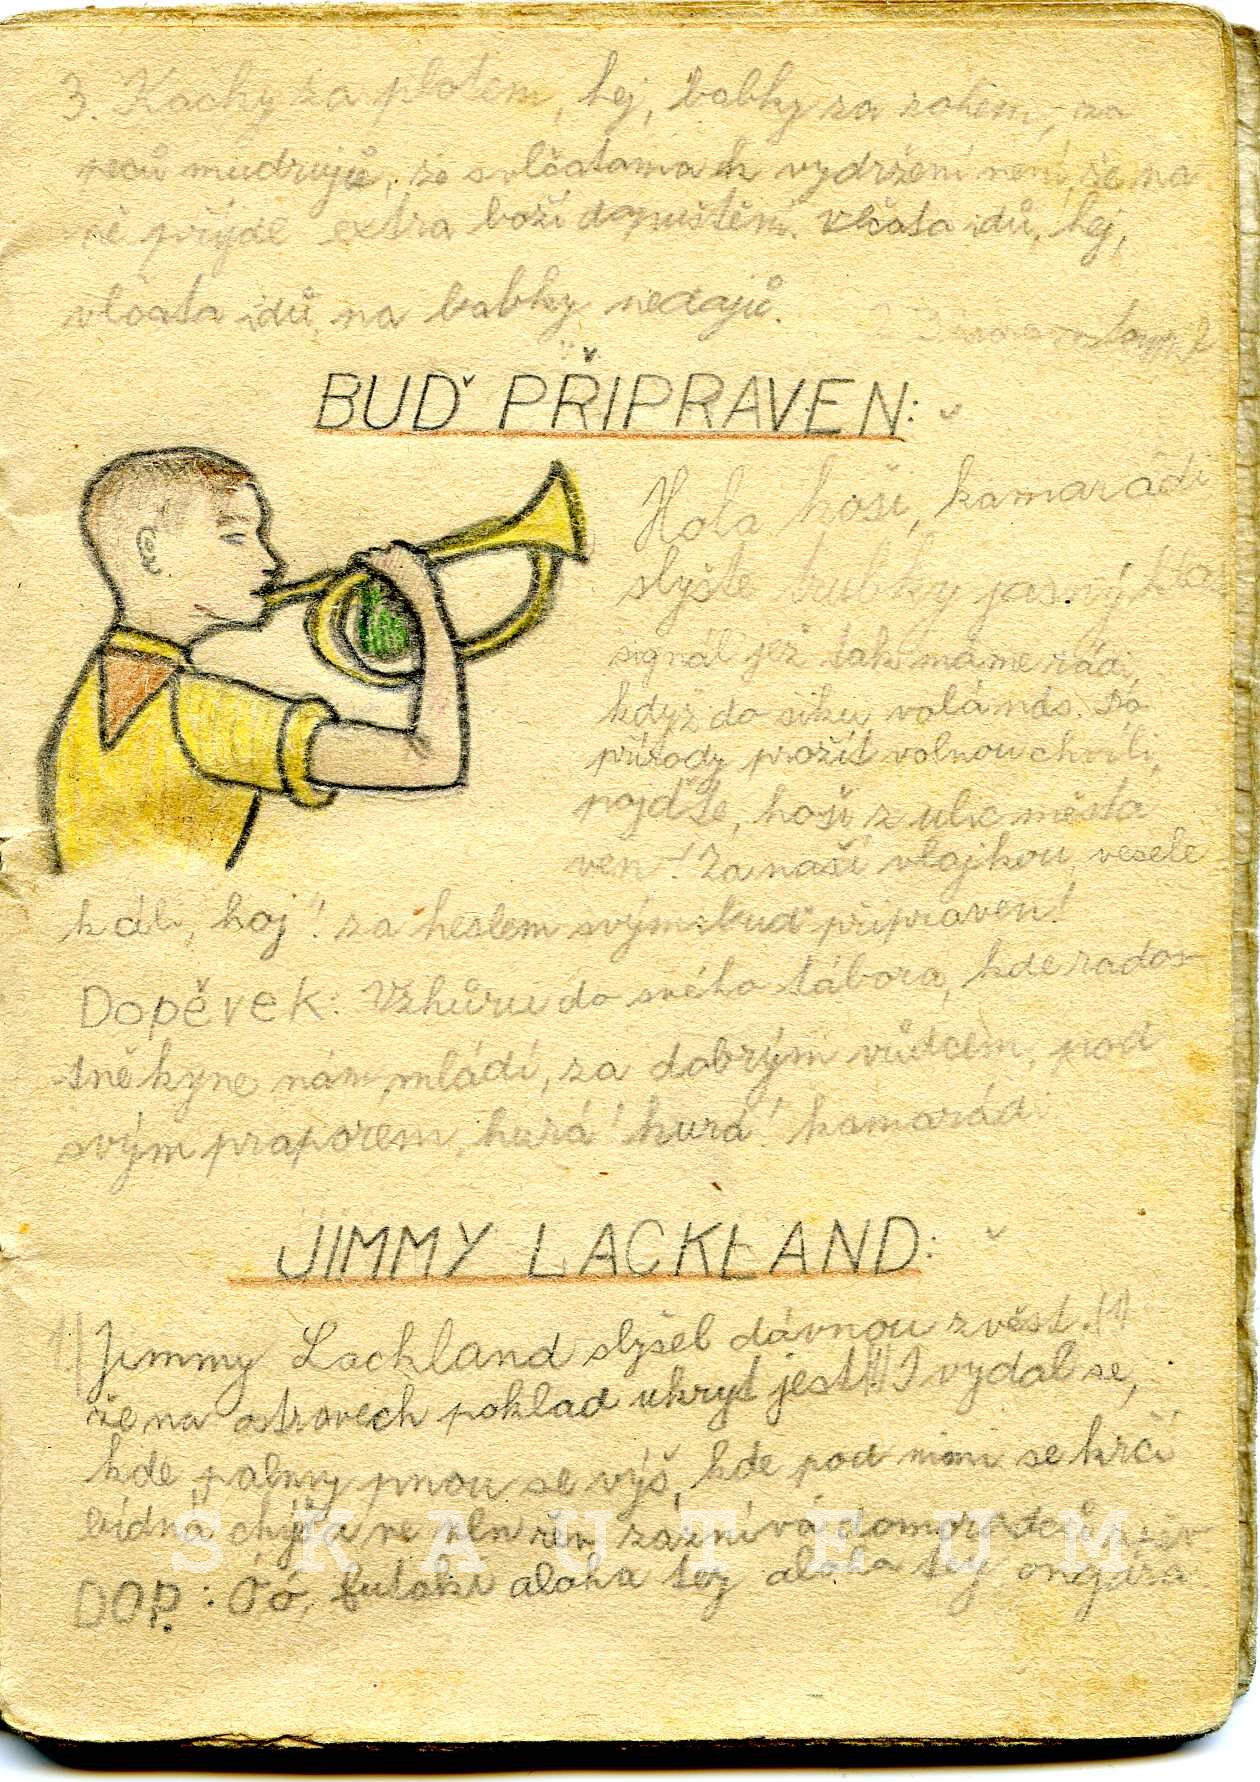 3. Kačky za plotem, hej, babky za rohem, za
neců mudrujů, že s vlčatama k vydržení není, že na
ně přijde extra boží dopuštění. Vlčata idů, hej,
vlčata idů, na babky nedajů.
BUĎ PŘIPRAVEN:
Hola hoši, kamarádi
slyšte trubky jasný
signál jež tak máme rádi,
když do šiku volá nás. Do
přírody prožít volnou chvíli,
pojďte, hoši z ulic města
ven! Za naší vlajkou vesele
kdál, hoj! za heslem svým: buď připraven!
Dopěvek: Vzhůru do svého tábora, kde rados-
tně kyne nám mládí, za dobrým vůdcem, pod
svým praporem, hurá! hurá! kamarádi
JIMMY LACKLAND:
1. Jimmy Lackland slyšel dávnou zvěst.
že na ostrovech poklad ukryt jest I vydal se,
kde palmy pnou se výš, kde pod nimi se krčí
bídná chýš a ve vln řev zaznívá domorodců zpěv
DOP.: Óó, futaki aloha tey aloha tej ongára
SKAUTEUM